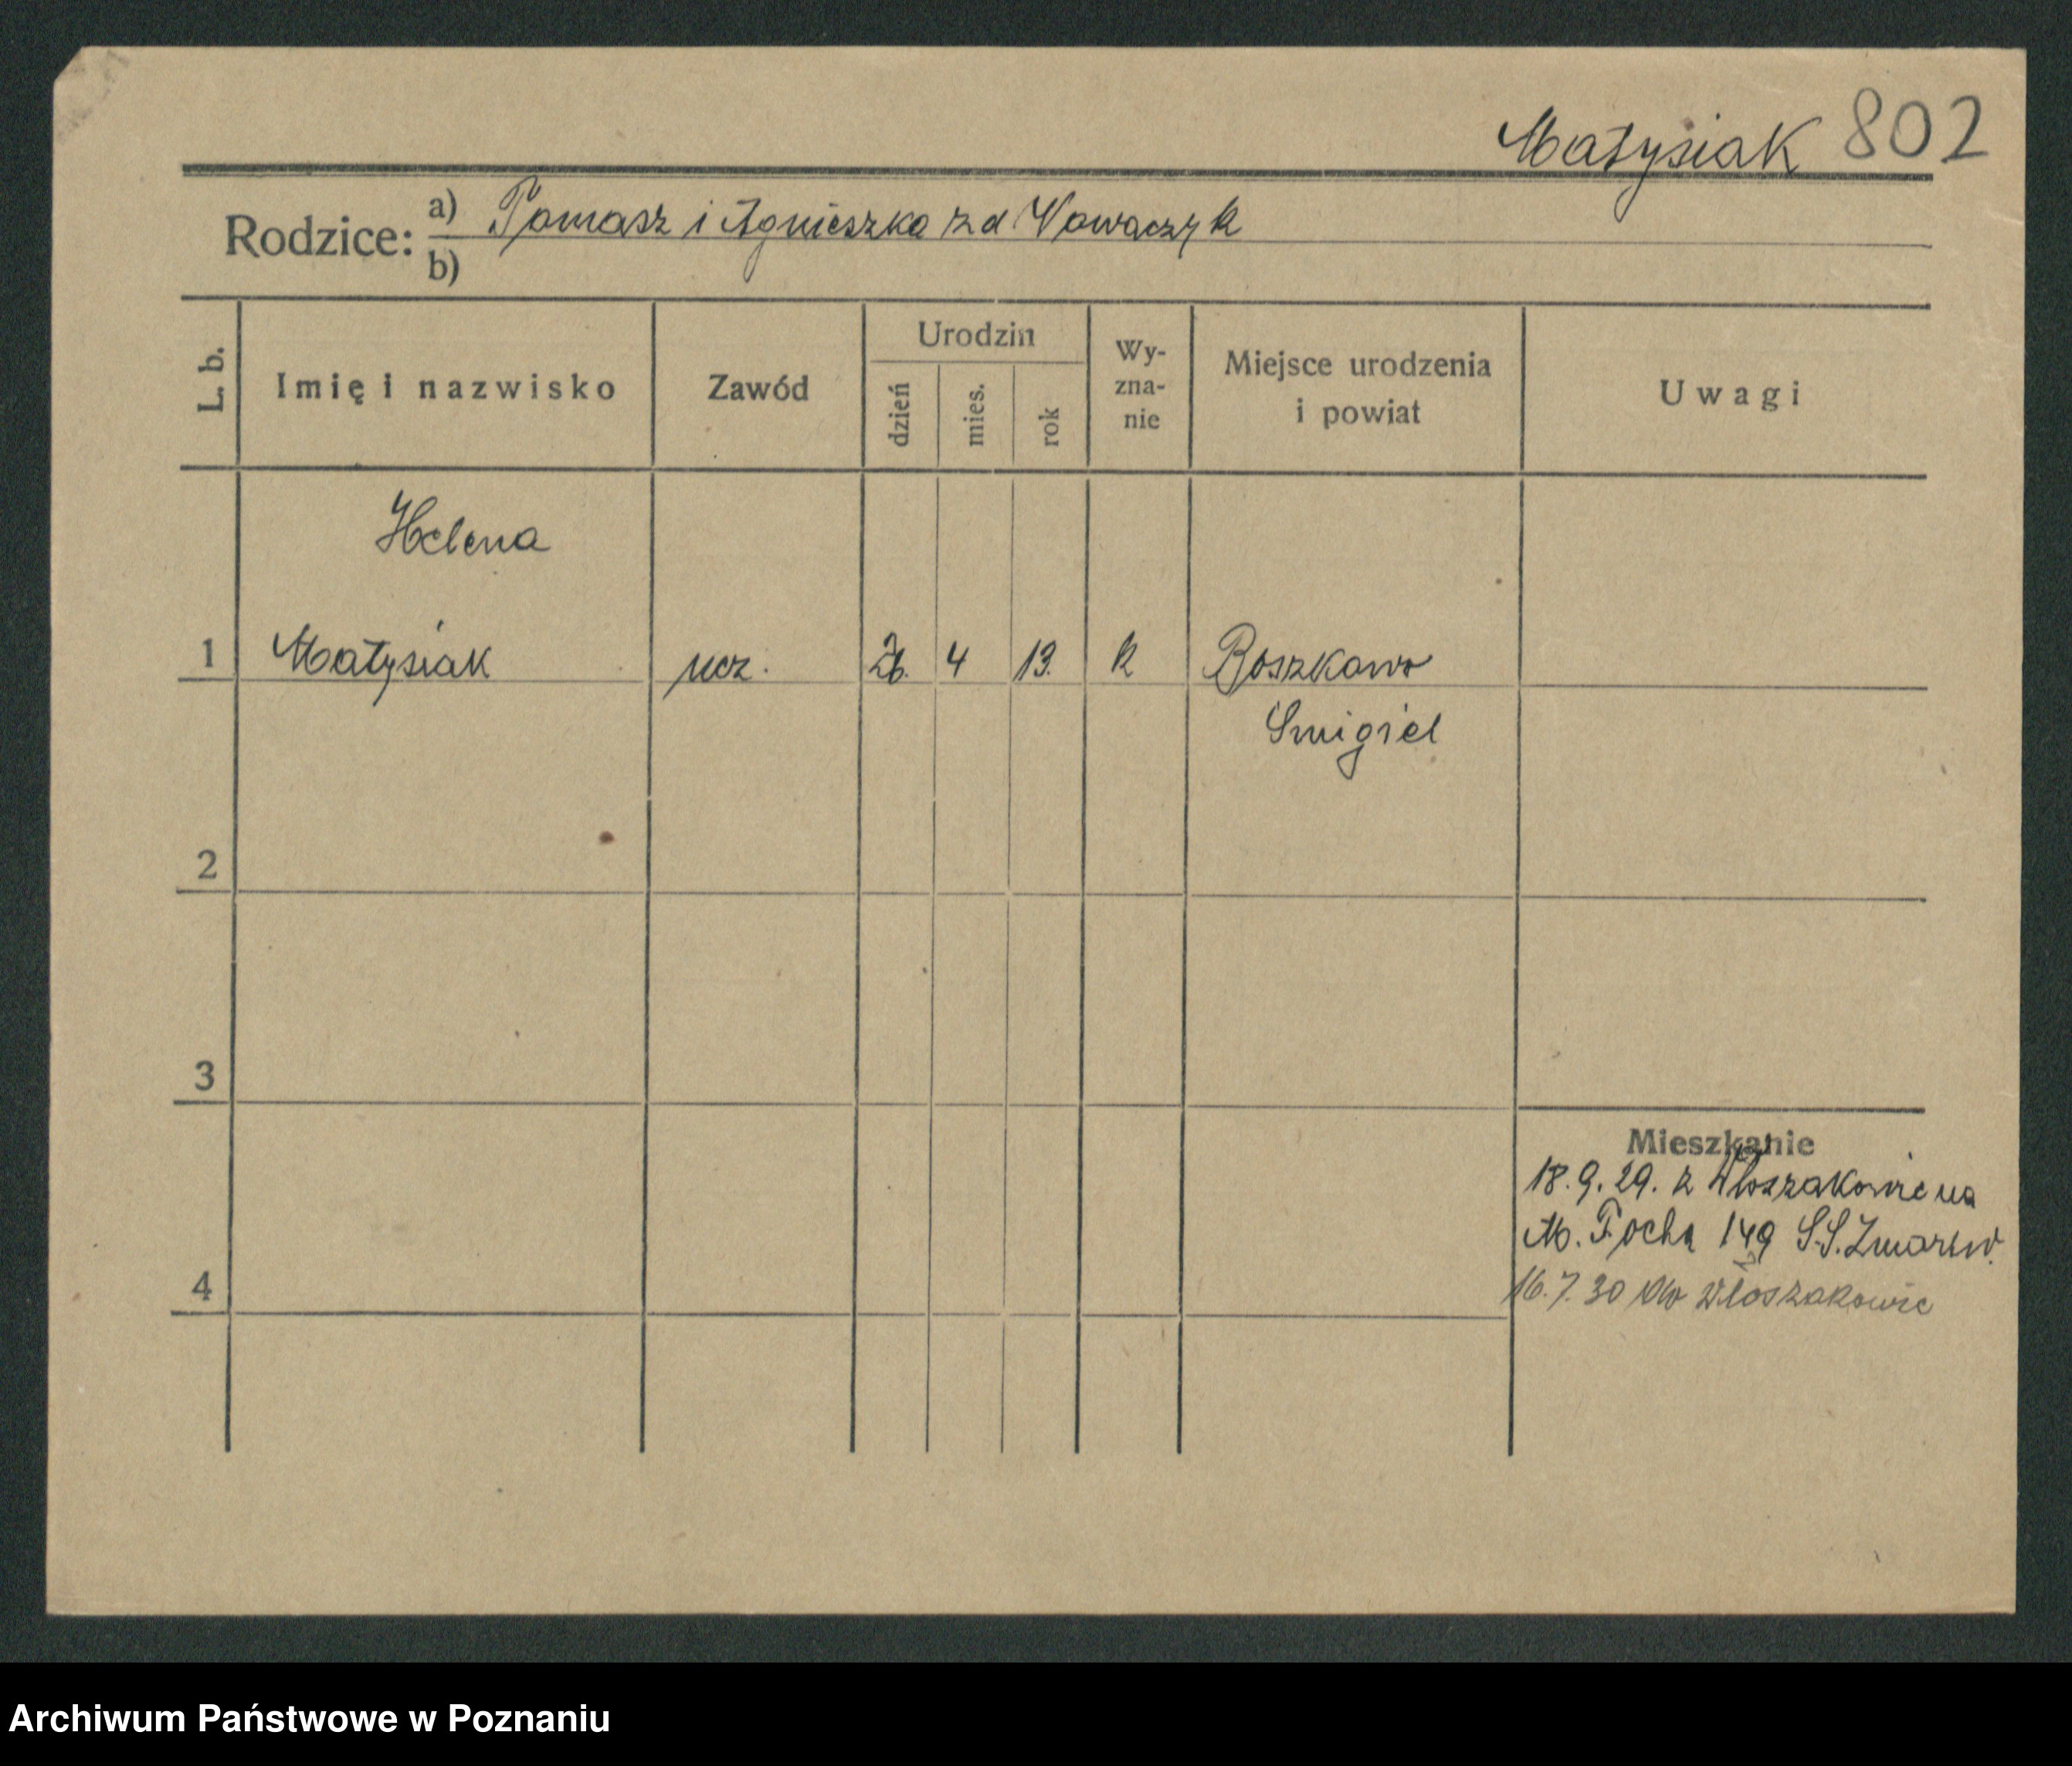 Matysiak 802
Rodzice: a) Tomasz i Agnieszka zd Nowaczyk
b)
L. b.
Imię i nazwisko
Zawód
Urodzin
dzień
mies.
rok
Wy-
zna-
nie
Miejsce urodzenia
i powiat
Uwagi
Helena
1 Matysiak ucz. 26. 4 13. k Boszkowo
Smigiel
2
3
Mieszkanie
18.9.29. z Włoszakowic na
M. Focha 149 S.S. Zmartw.
4 16.7.30 do Włoszakowic
Archiwum Państwowe w Poznaniu